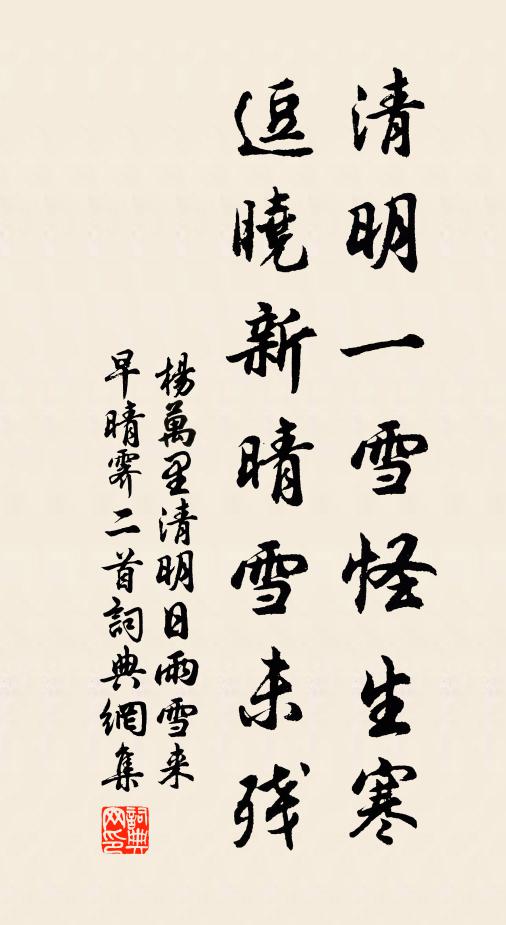 清明一雪怪生寒
逗曉新晴雪未殘
楊萬里清明日雨雪来
早晴霽二首詞典網集
詞典网印